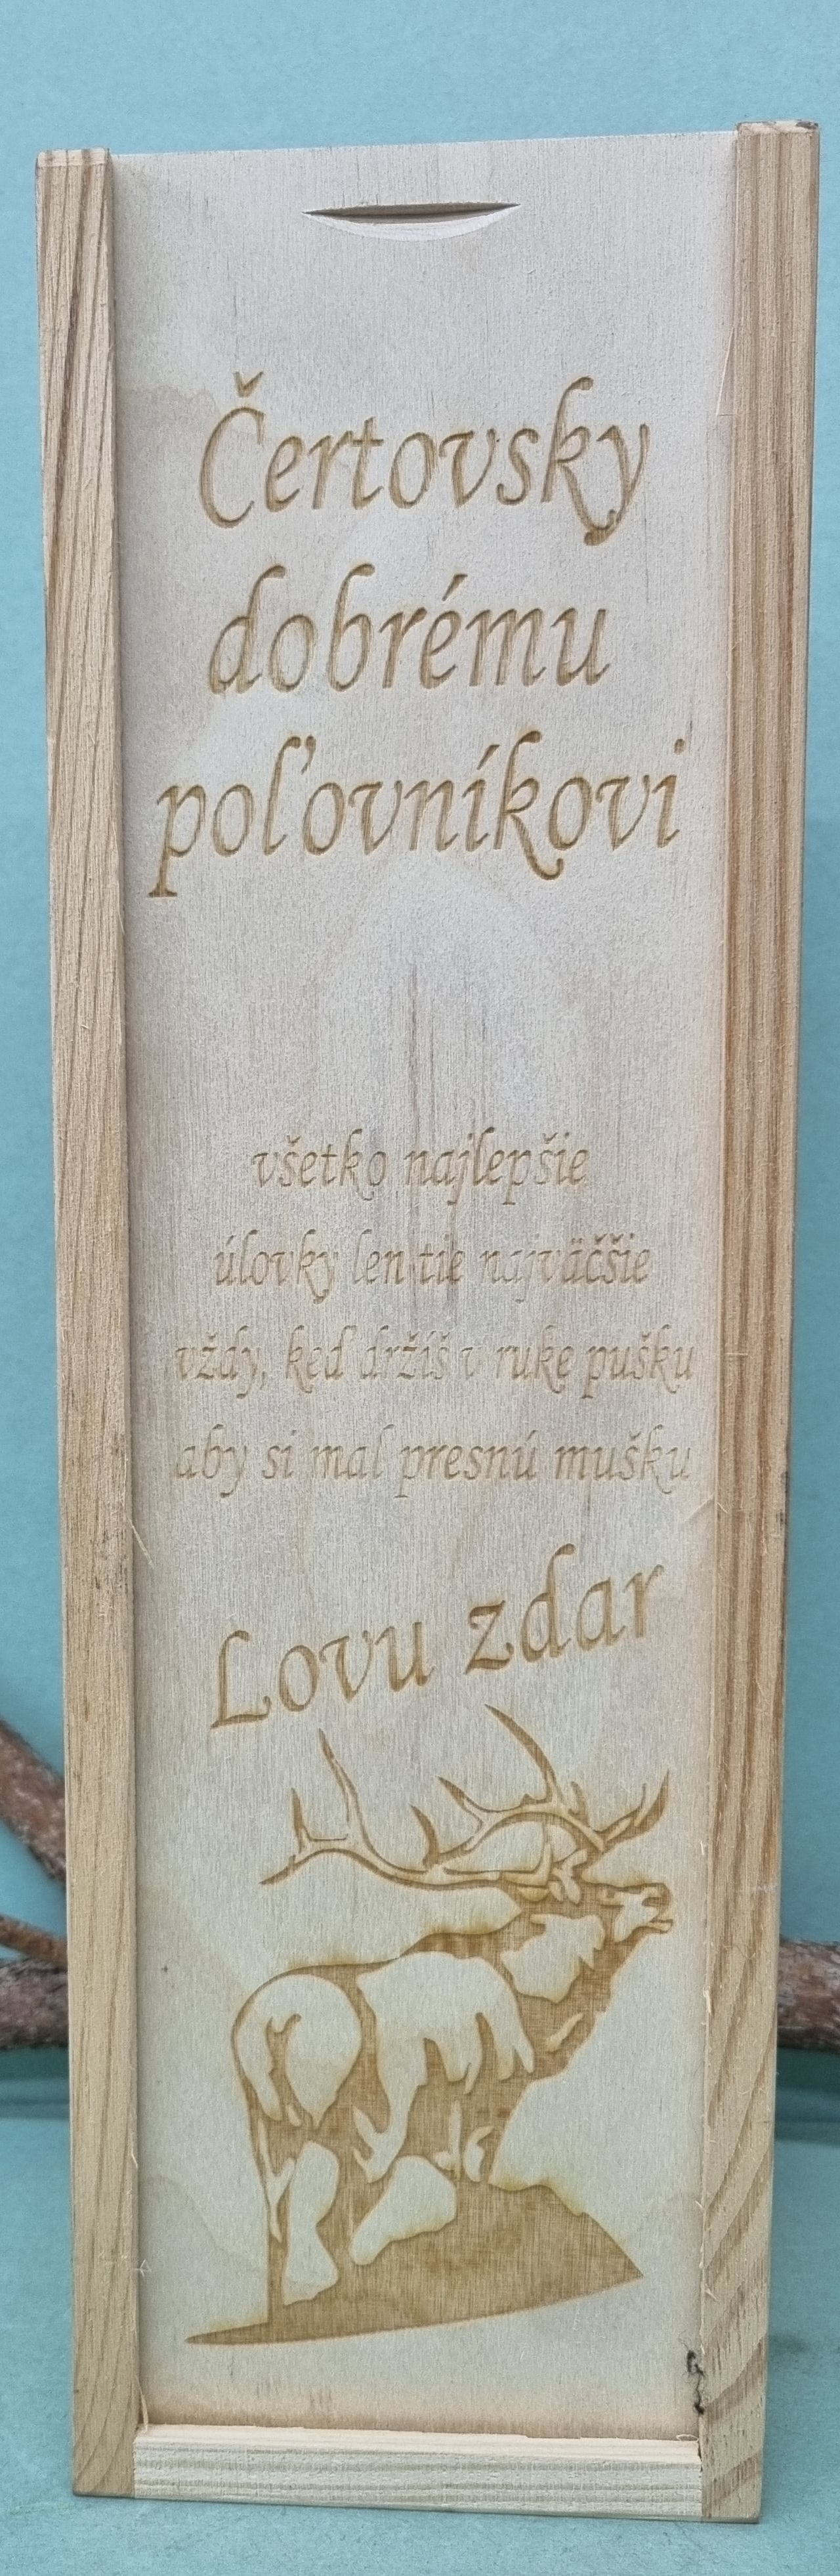 Čertovsky
dobrému
poľovníkovi
všetko najlepšie
úlovky len tie najväčšie
vždy, keď držíš v ruke pušku
aby si mal presnú mušku
Lovu zdar